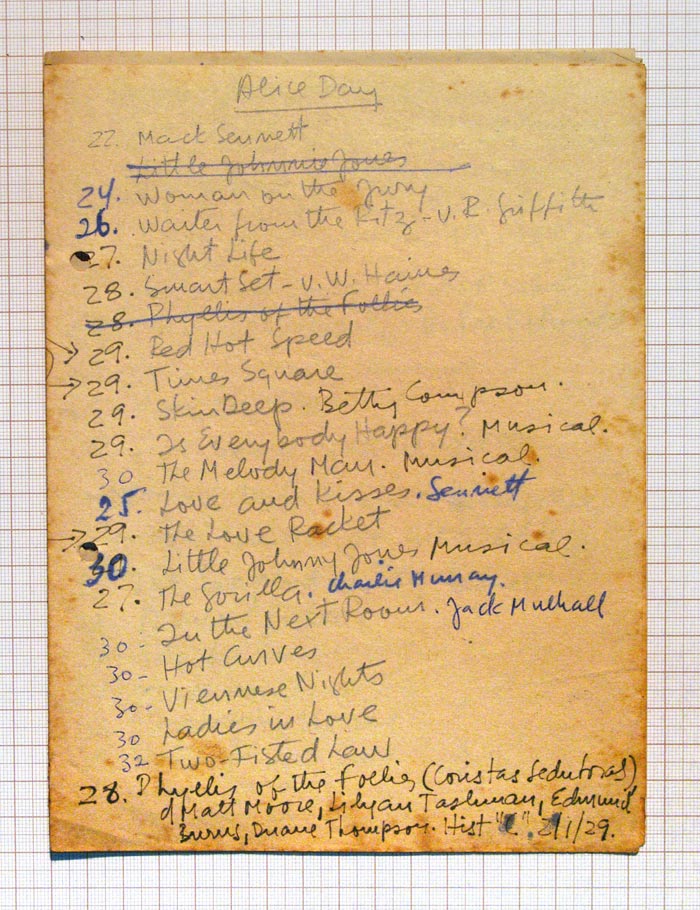 Alice Day
22. Mack Sennett
Little Johnnie Jones
24. Woman on the Jury
26. Waiter from the Ritz - v. R. Griffith
27. Night Life
28. Smart Set - v. W. Haines
28. Phyllis of the Follies
29. Red Hot Speed
29. Times Square
29. Skin Deep. Betty Compson.
29. Is Everybody Happy? Musical.
30 The Melody Man. Musical.
25. Love and Kisses. Sennett
29. The Love Racket
30. Little Johnny Jones Musical.
27. The Gorilla. Charlie Murray.
30- In the Next Room. Jack Mulhall
30- Hot Curves
30- Viennese Nights
30 Ladies in Love
32 Two-Fisted Law
28. Phyllis of the Follies (Coristas Sedutoras)
d Matt Moore, Lilyan Tashman, Edmund
Burns, Duane Thompson. Hist 2/1/29.